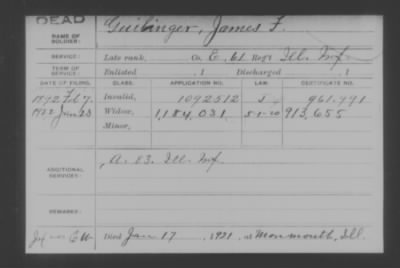 DEAD
NAME OF SOLDIER: Guibinger, James F.
SERVICE: Late rank, Co. E. 61 Reg't Ill. Inf
TERM OF SERVICE: Enlisted , 1 Discharged , 1
DATE OF FILING. CLASS. APPLICATION NO. LAW. CERTIFICATE NO.
1892 Feb 7. Invalid, 1092512 961.991
Jan 23 Widow, 1,184,031. 913,655
Minor,
ADDITIONAL SERVICES: , A. 83. Ill. Inf.
REMARKS:
Died Jan 17 1921, at Monmouth, Ill.